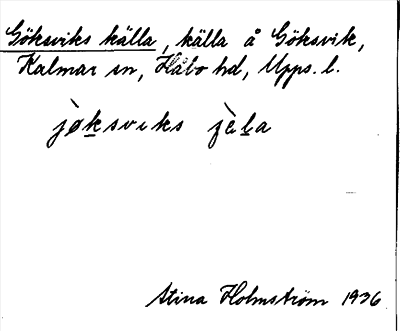 Göksviks källa, källa å Göksvik,
Kalmar sn, Håbo hd, Upps. l.
jø̀ksviks jɛ̀la
Stina Holmström 1936